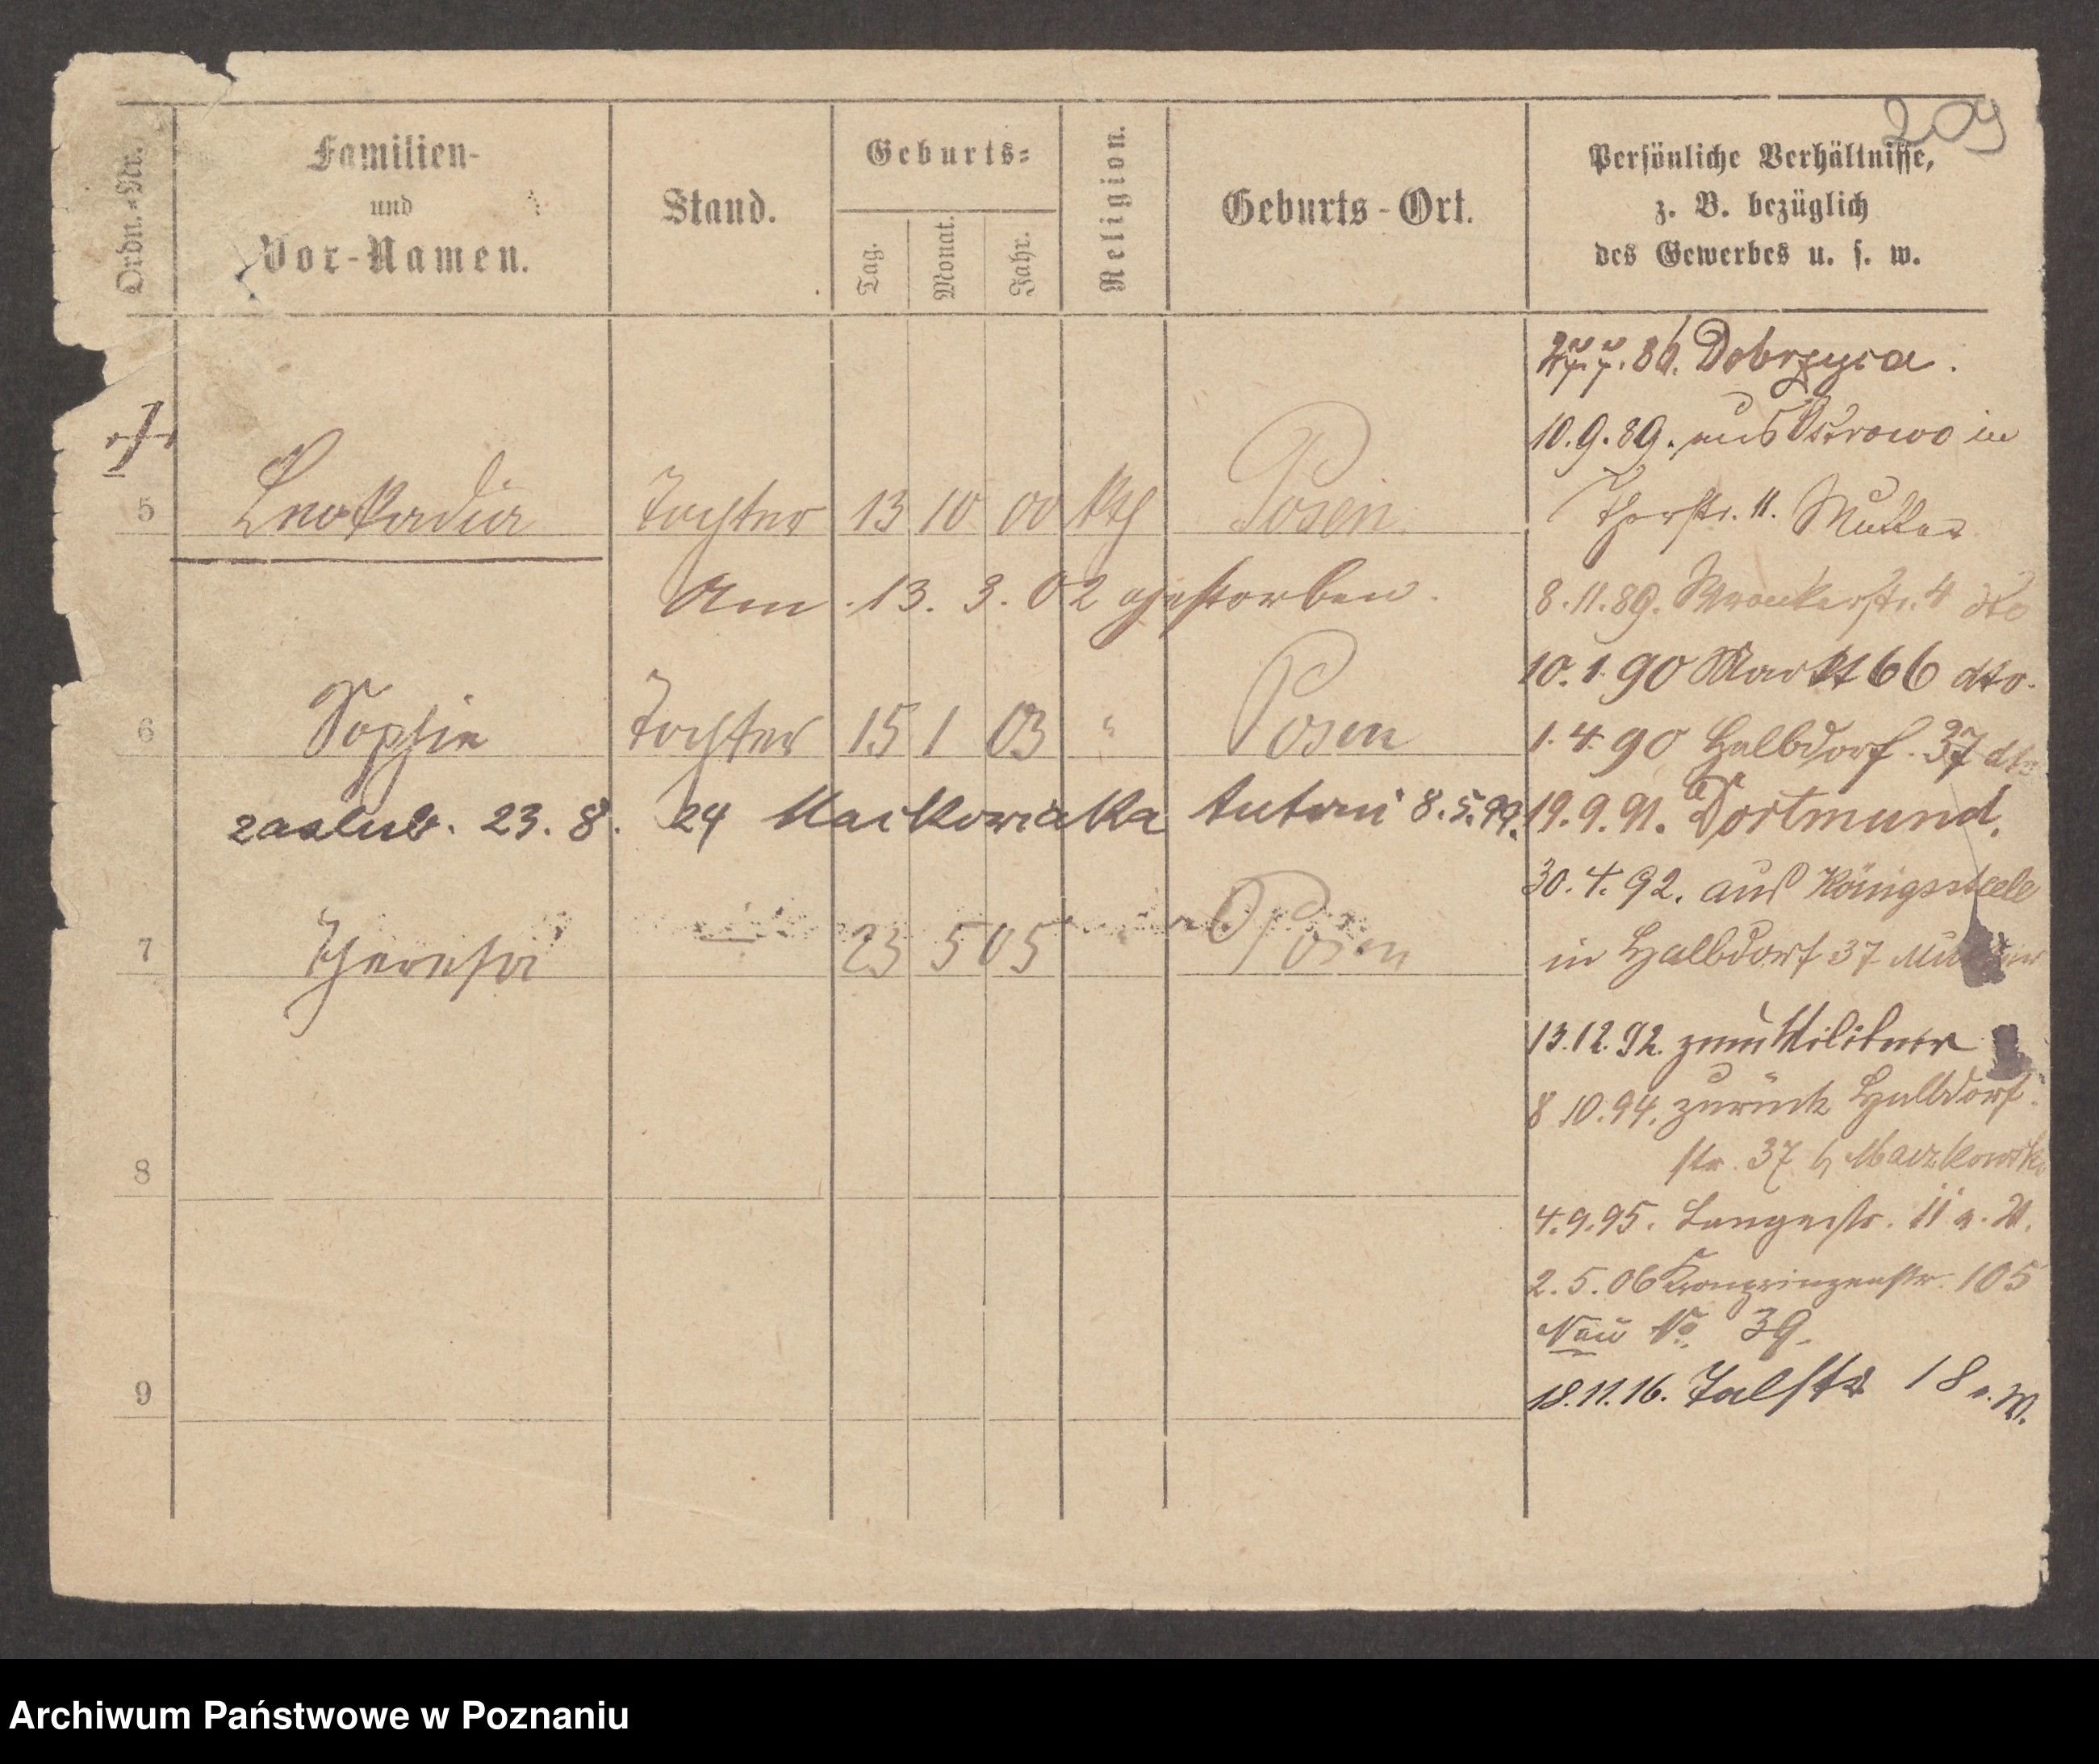 209
Ordn.-Nr.
Familien-
und
Vor-Namen.
Stand.
Geburts-
Tag.
Monat.
Jahr.
Religion.
Geburts-Ort.
Persönliche Verhältnisse,
z. B. bezüglich
des Gewerbes u. s. w.
5 Leokadia Tochter 13 10 00 kth Posen
Am 13. 3. 02 gestorben.
6 Sophie Tochter 15 1 03 " Posen
zaślub. 23. 8. 24 Maćkowiaka Antoni 8.5.99.
7 Theresia 23 5 05 " Posen
8
9
86. Dobrzyca.
10.9.89. aus Ostrowo in
Thorstr. 11. Mutter
8.11.89. Wronkerstr. 4 dto
10.1.90 Markt 66 dto.
1.4.90 Halbdorf. 37 dto
19.9.91. Dortmund.
30.4.92. aus Königssteele
in Halbdorf 37 Mutter
13.12.92. zum Militair
8 10.94. zurück Halbdorf
str. 37 b/
4.9.95. Langestr. 11
2.5.06 Kronprinzenstr. 105
Neu No 39.
18.11.16. Talstr 18
Archiwum Państwowe w Poznaniu